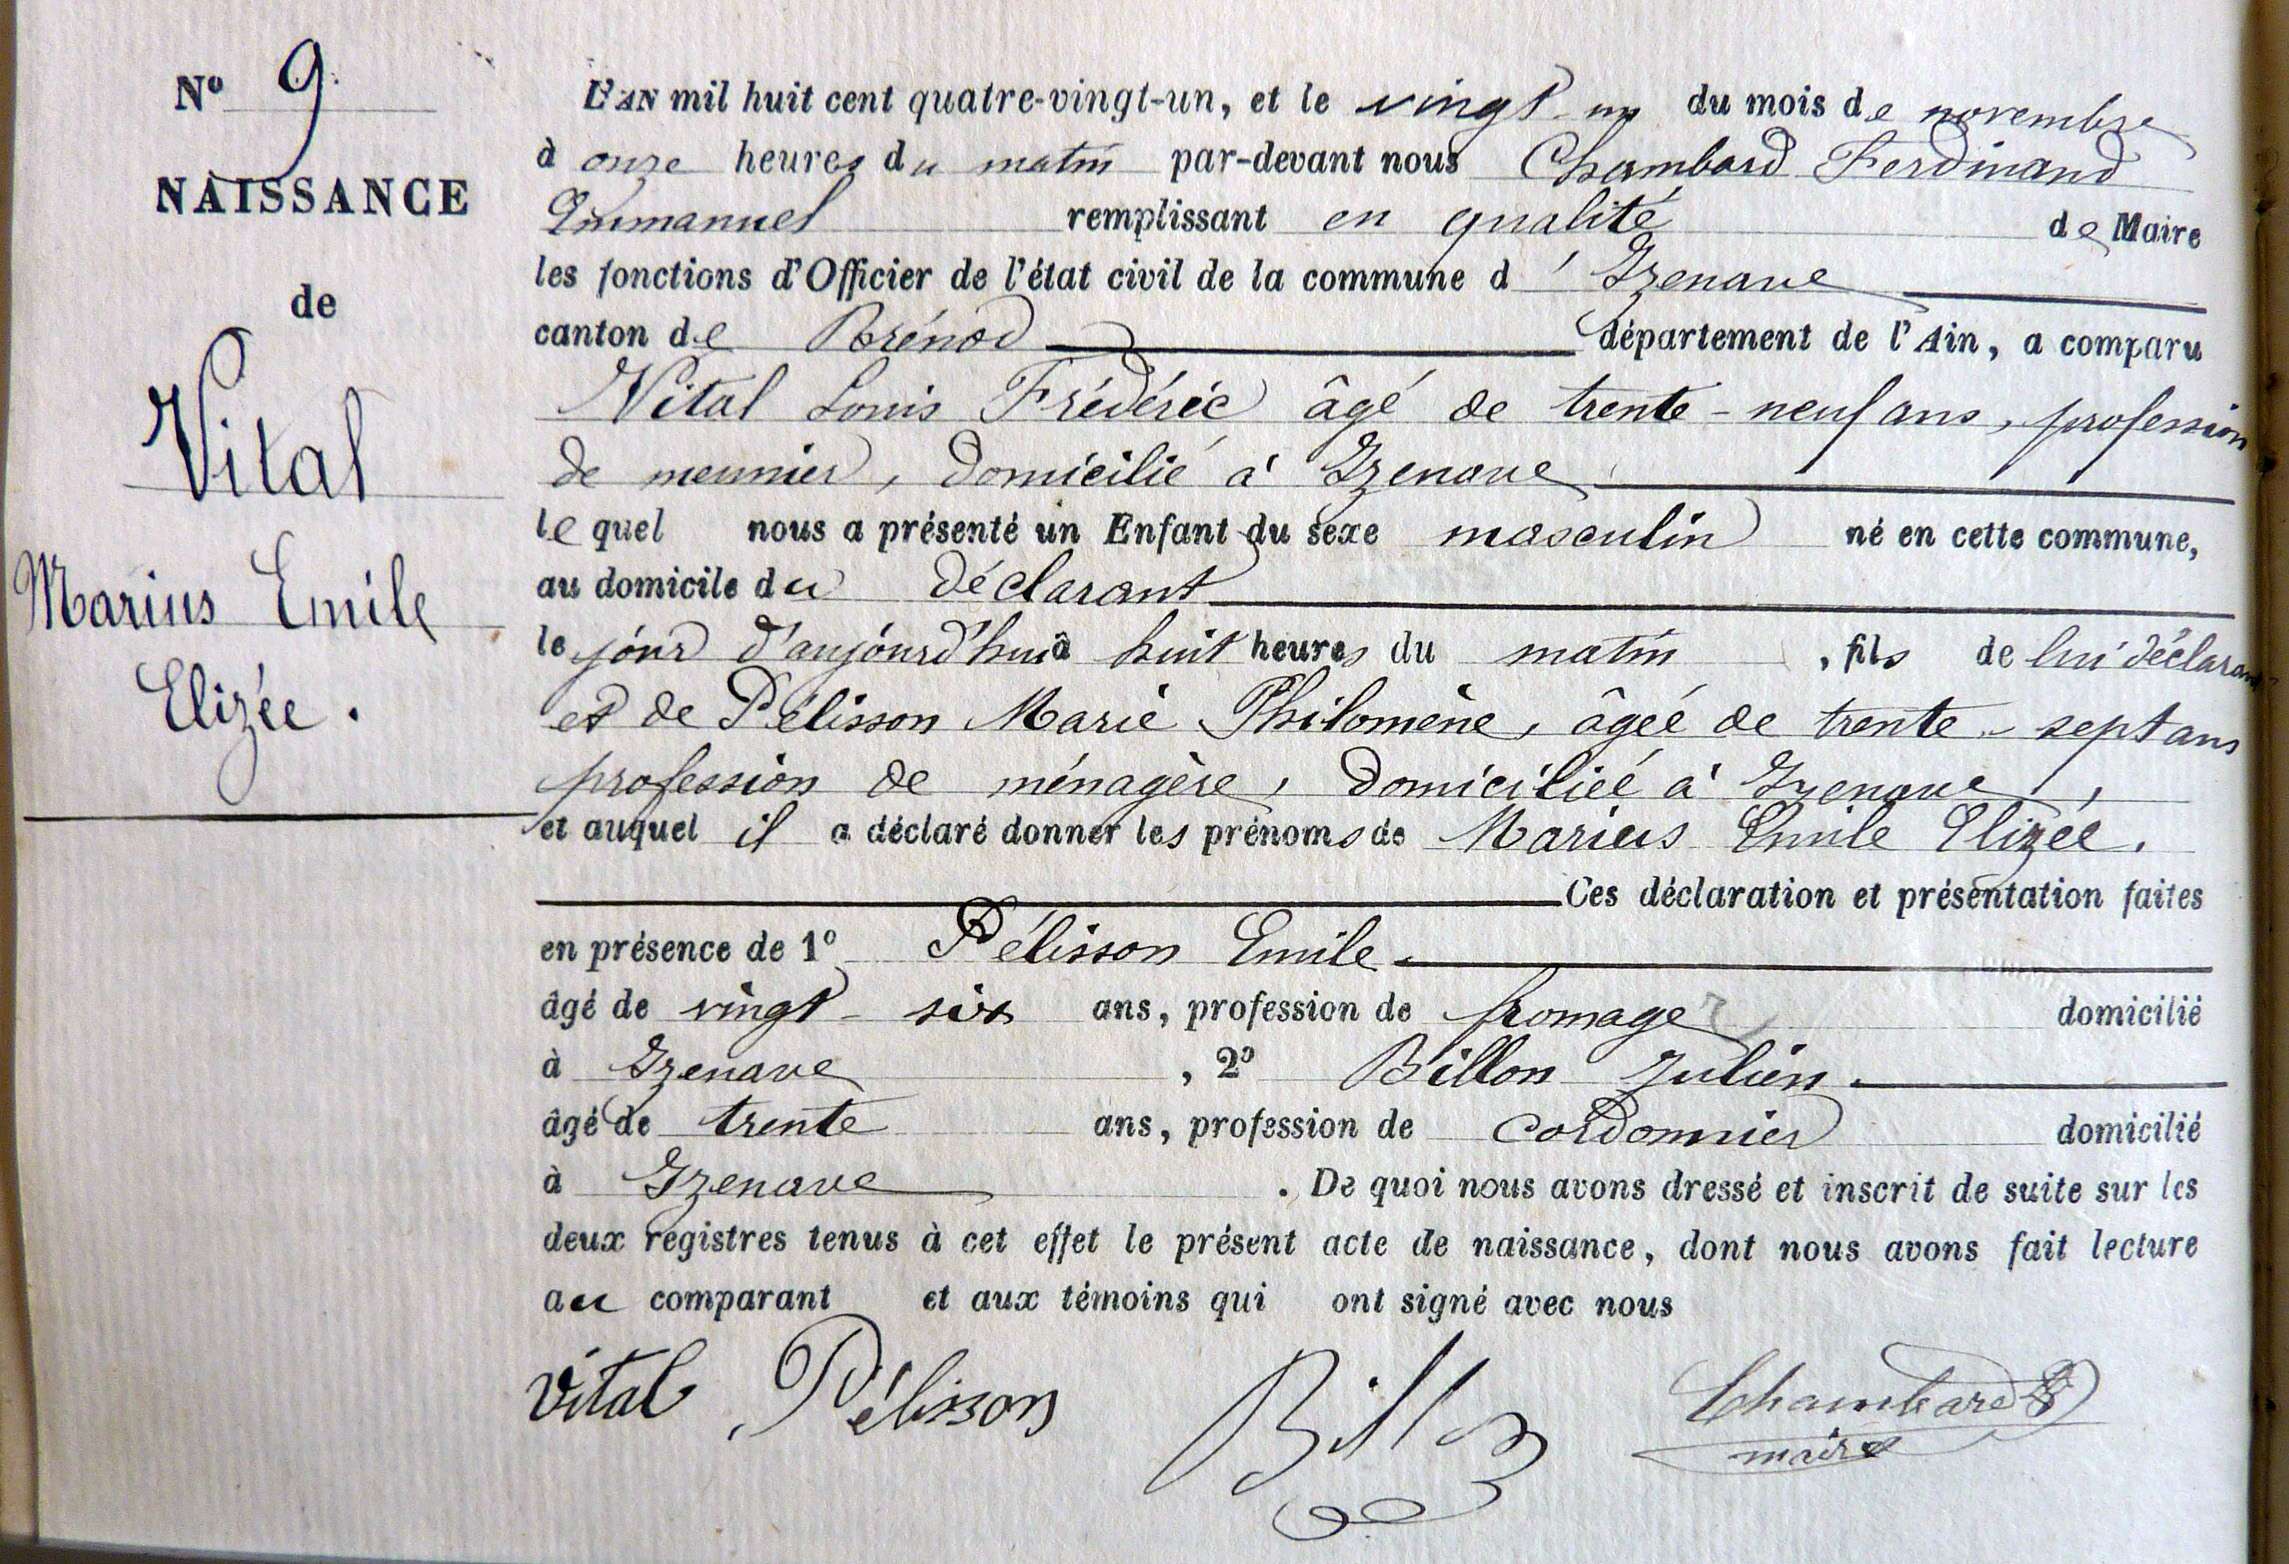 N° 9
NAISSANCE
de
Vital
Marius Emile
Elizée.
L'AN mil huit cent quatre-vingt-un, et le vingt-un du mois de novembre
à onze heures du matin par-devant nous Chambard Ferdinand
Emmanuel remplissant en qualité de Maire
les fonctions d'Officier de l'état civil de la commune d'Izenave
canton de Brénod département de l'Ain, a comparu
Vital Louis Frédéric âgé de trente-neuf ans, profession
de meunier, domicilié à Izenave
lequel nous a présenté un Enfant du sexe masculin né en cette commune,
au domicile du déclarant
le jour d'aujourd'hui à huit heures du matin, fils de lui déclarant
et de Pélisson Marie Philomène, âgée de trente-sept ans
profession de ménagère, domiciliée à Izenave,
et auquel il a déclaré donner les prénoms de Marius Emile Elizée.
Ces déclaration et présentation faites
en présence de 1° Pélisson Emile
âgé de vingt-six ans, profession de fromager domicilié
à Izenave, 2° Billon Julien
âgé de trente ans, profession de cordonnier domicilié
à Izenave. De quoi nous avons dressé et inscrit de suite sur les
deux registres tenus à cet effet le présent acte de naissance, dont nous avons fait lecture
au comparant et aux témoins qui ont signé avec nous
Vital Pélisson Billon Chambard
maire